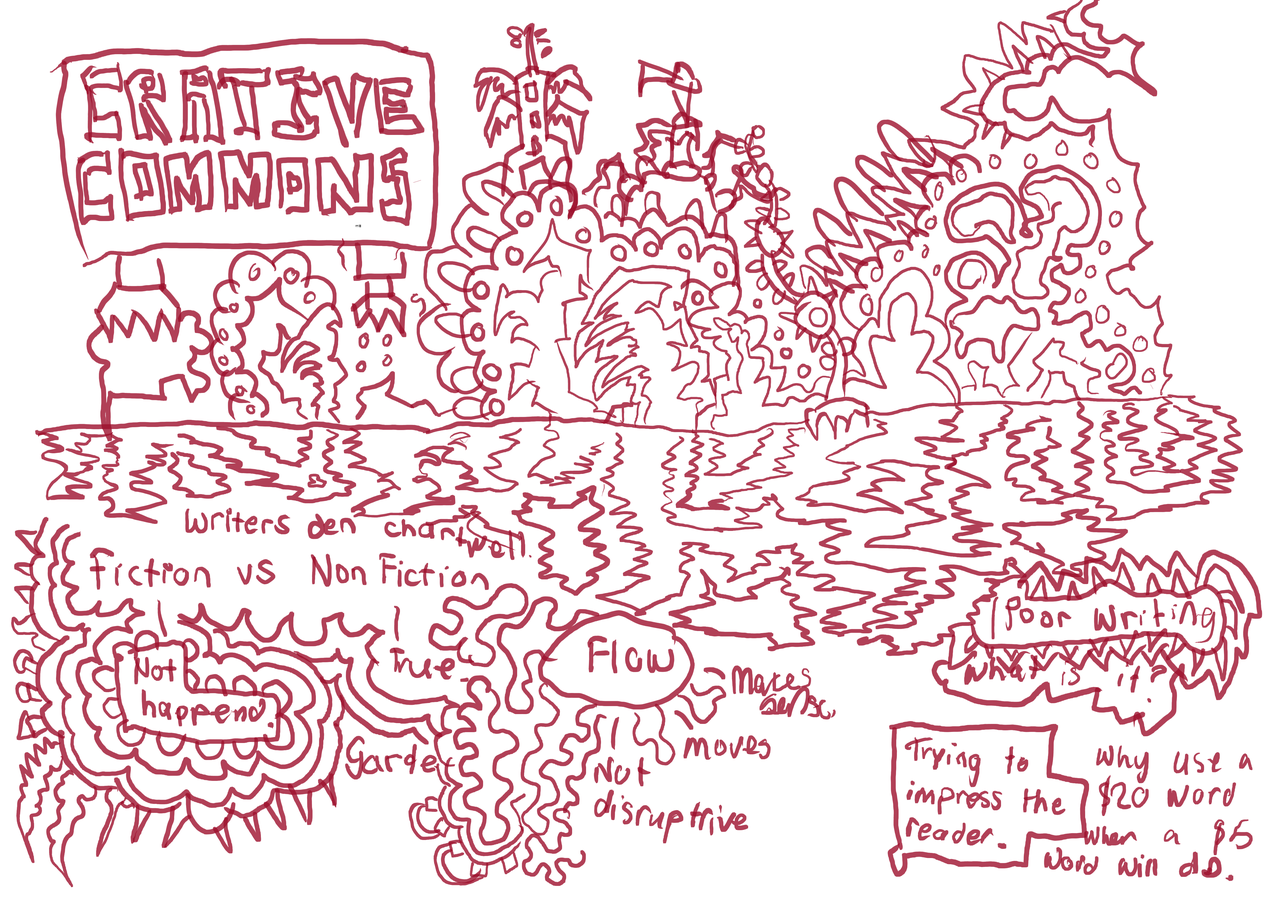 CRATIVE
COMMONS
Writers den chartwell.
fiction vs Non Fiction
Not
happend.
True
garden
Flow
Makes
sense.
moves
Not
disruptrive
Poor Writing
What is it?
Trying to
impress the
reader.
Why use a
$20 word
when a $5
word will do.